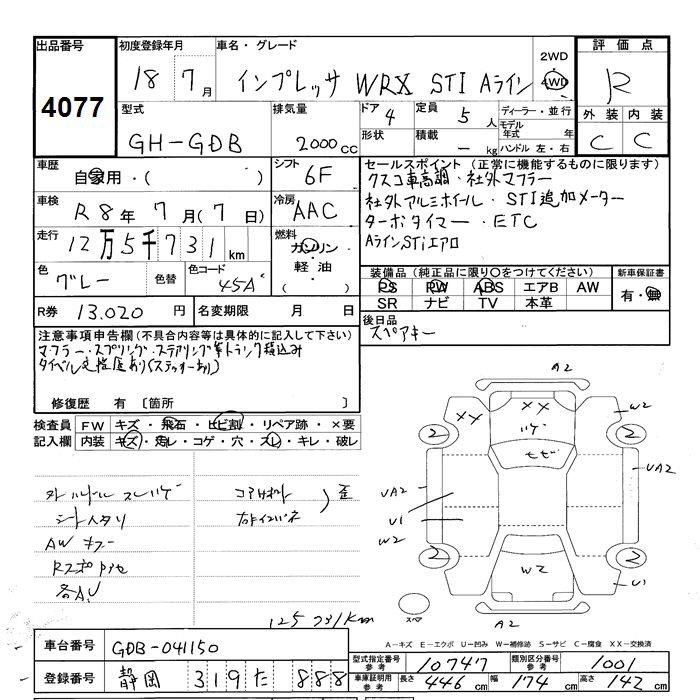 出品番号 初度登録年月 車名・グレード 2WD 評価点
4077 18年7月 インプレッサ WRX STI Aライン 4WD R
型式 排気量 ドア 4 定員 5人 ディーラー・並行 外装 内装
GH-GDB 2000cc 形状 積載 - kg モデル年式 年 C C
ハンドル 左・右
車歴 自家用・( ) シフト 6F
セールスポイント (正常に機能するものに限ります)
クスコ車高調・社外マフラー
車検 R8年7月(7日) 冷房 AAC
社外アルミホイール・STI追加メーター
ターボタイマー・ETC
走行 12万5千731km 燃料 ガソリン・軽油・( )
AラインSTiエアロ
色 グレー 色替 色コード 45A
装備品 (純正品に限り○をつけてください) 新車保証書
PS PW ABS エアB AW 有・無
SR ナビ TV 本革
R券 13.020円 名変期限 月 日
後日品
スペアキー
注意事項申告欄(不具合内容等は具体的に記入して下さい)
マフラー・スプリング・ステアリング等トランク積込み
修復歴 有 〔箇所 〕
検査員 FW キズ・飛石・ヒビ割・リペア跡・×要
記入欄 内装 キズ・汚レ・コゲ・穴・スレ・キレ・破レ
シートヘタリ
AW キズ
コアサポート 歪
A2
XX XX W2
2 2
UA2 UA2
U1
W2
2 2
W2 U1
スペア A2
125731km
A-キズ E-エクボ U-凹み W-補修跡 S-サビ C-腐食 XX-交換済
車台番号 GDB-041150
登録番号 静岡 319 た 888
型式指定番号 参考 10747 類別区分番号 参考 1001
車庫証明用 参考 長さ 446cm 幅 174cm 高さ 142cm